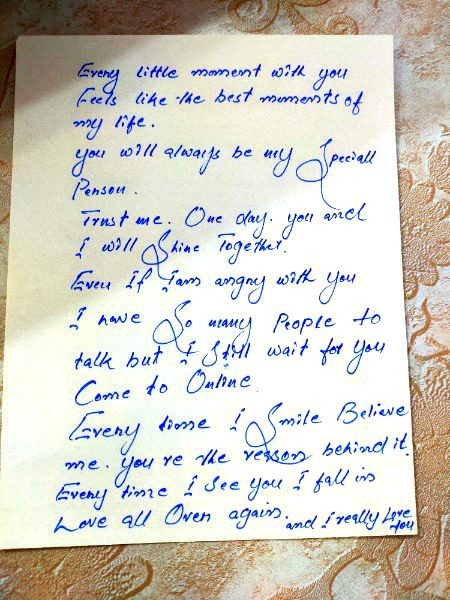 Every little moment with you
Feels like the best moments of
my life.
you will always be my Speciall
Person.
Trust me. One day. you and
I will Shine Together.
Even If Iam angry with you
I have So many People to
talk but I Still wait for you
Come to Online.
Every time I Smile Believe
me. you're the reason behind it.
Every time I See you I fall in
Love all Over again. and I really Love
you